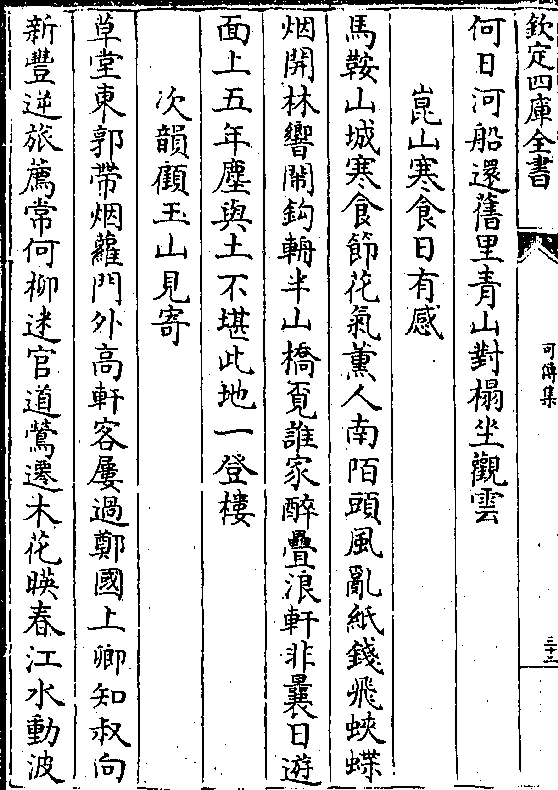 欽定四庫全書
可傳集
三十二
何日河船還舊里青山對榻坐觀雲
崑山寒食日有感
馬鞍山城寒食節花氣薰人南陌頭風亂紙錢飛蛺蝶
烟開林響鬧鈎輈半山橋覔誰家醉疊浪軒非曩日遊
面上五年塵與土不堪此地一登樓
次韻顧玉山見寄
草堂東郭帶烟蘿門外高軒客屢過鄭國上卿知叔向
新豐逆旅薦常何柳迷官道鶯遷木花暎春江水動波